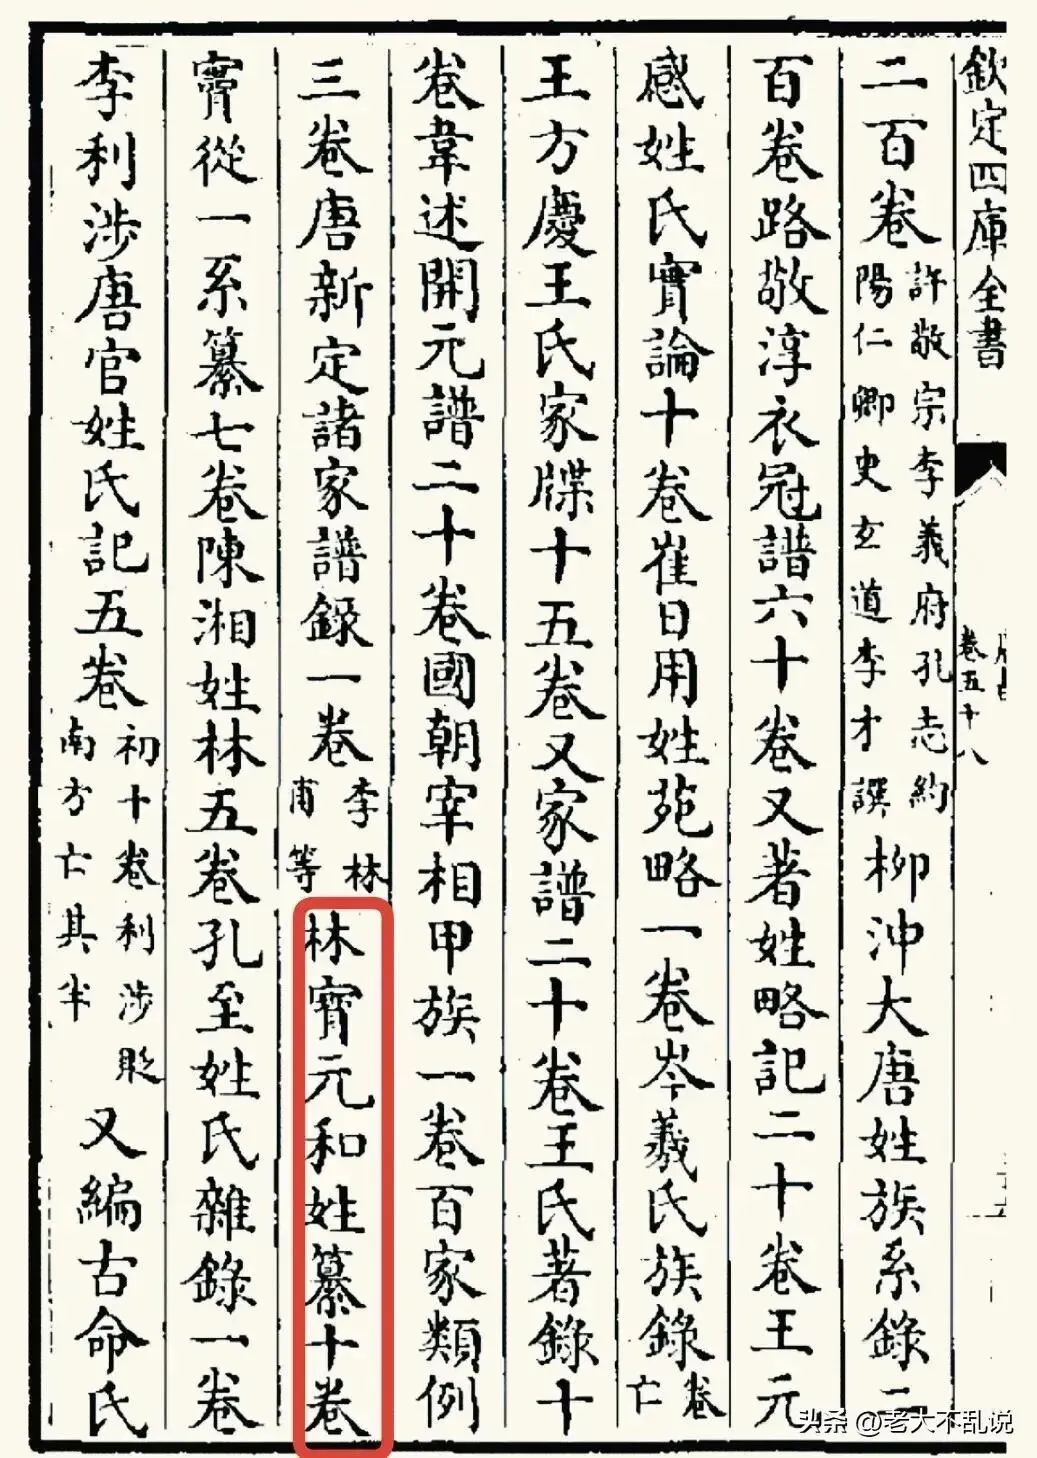 欽定四庫全書
卷五十八
二百卷許敬宗李義府孔志約陽仁卿史玄道李才譔柳沖大唐姓族系錄二
百卷路敬淳衣冠譜六十卷又著姓略記二十卷王元
感姓氏實論十卷崔日用姓苑略一卷岑羲氏族錄卷亡
王方慶王氏家牒十五卷又家譜二十卷王氏著錄十
卷韋述開元譜二十卷國朝宰相甲族一卷百家類例
三卷唐新定諸家譜錄一卷李林甫等林寶元和姓纂十卷
竇從一系纂七卷陳湘姓林五卷孔至姓氏雜錄一卷
李利涉唐官姓氏記五卷初十卷利涉貶南方亡其半又編古命氏
头条 @老大不乱说